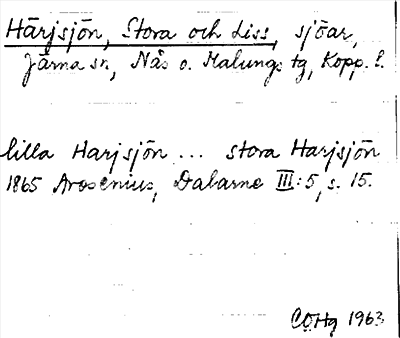 Härjsjön, Stora och Liss, sjöar,
Järna sn, Nås o. Malungs tg, Kopp. l.
lilla Harjsjön ... stora Harjsjön
1865 Arosenius, Dalarne III:5, s. 15.
COHg 1963